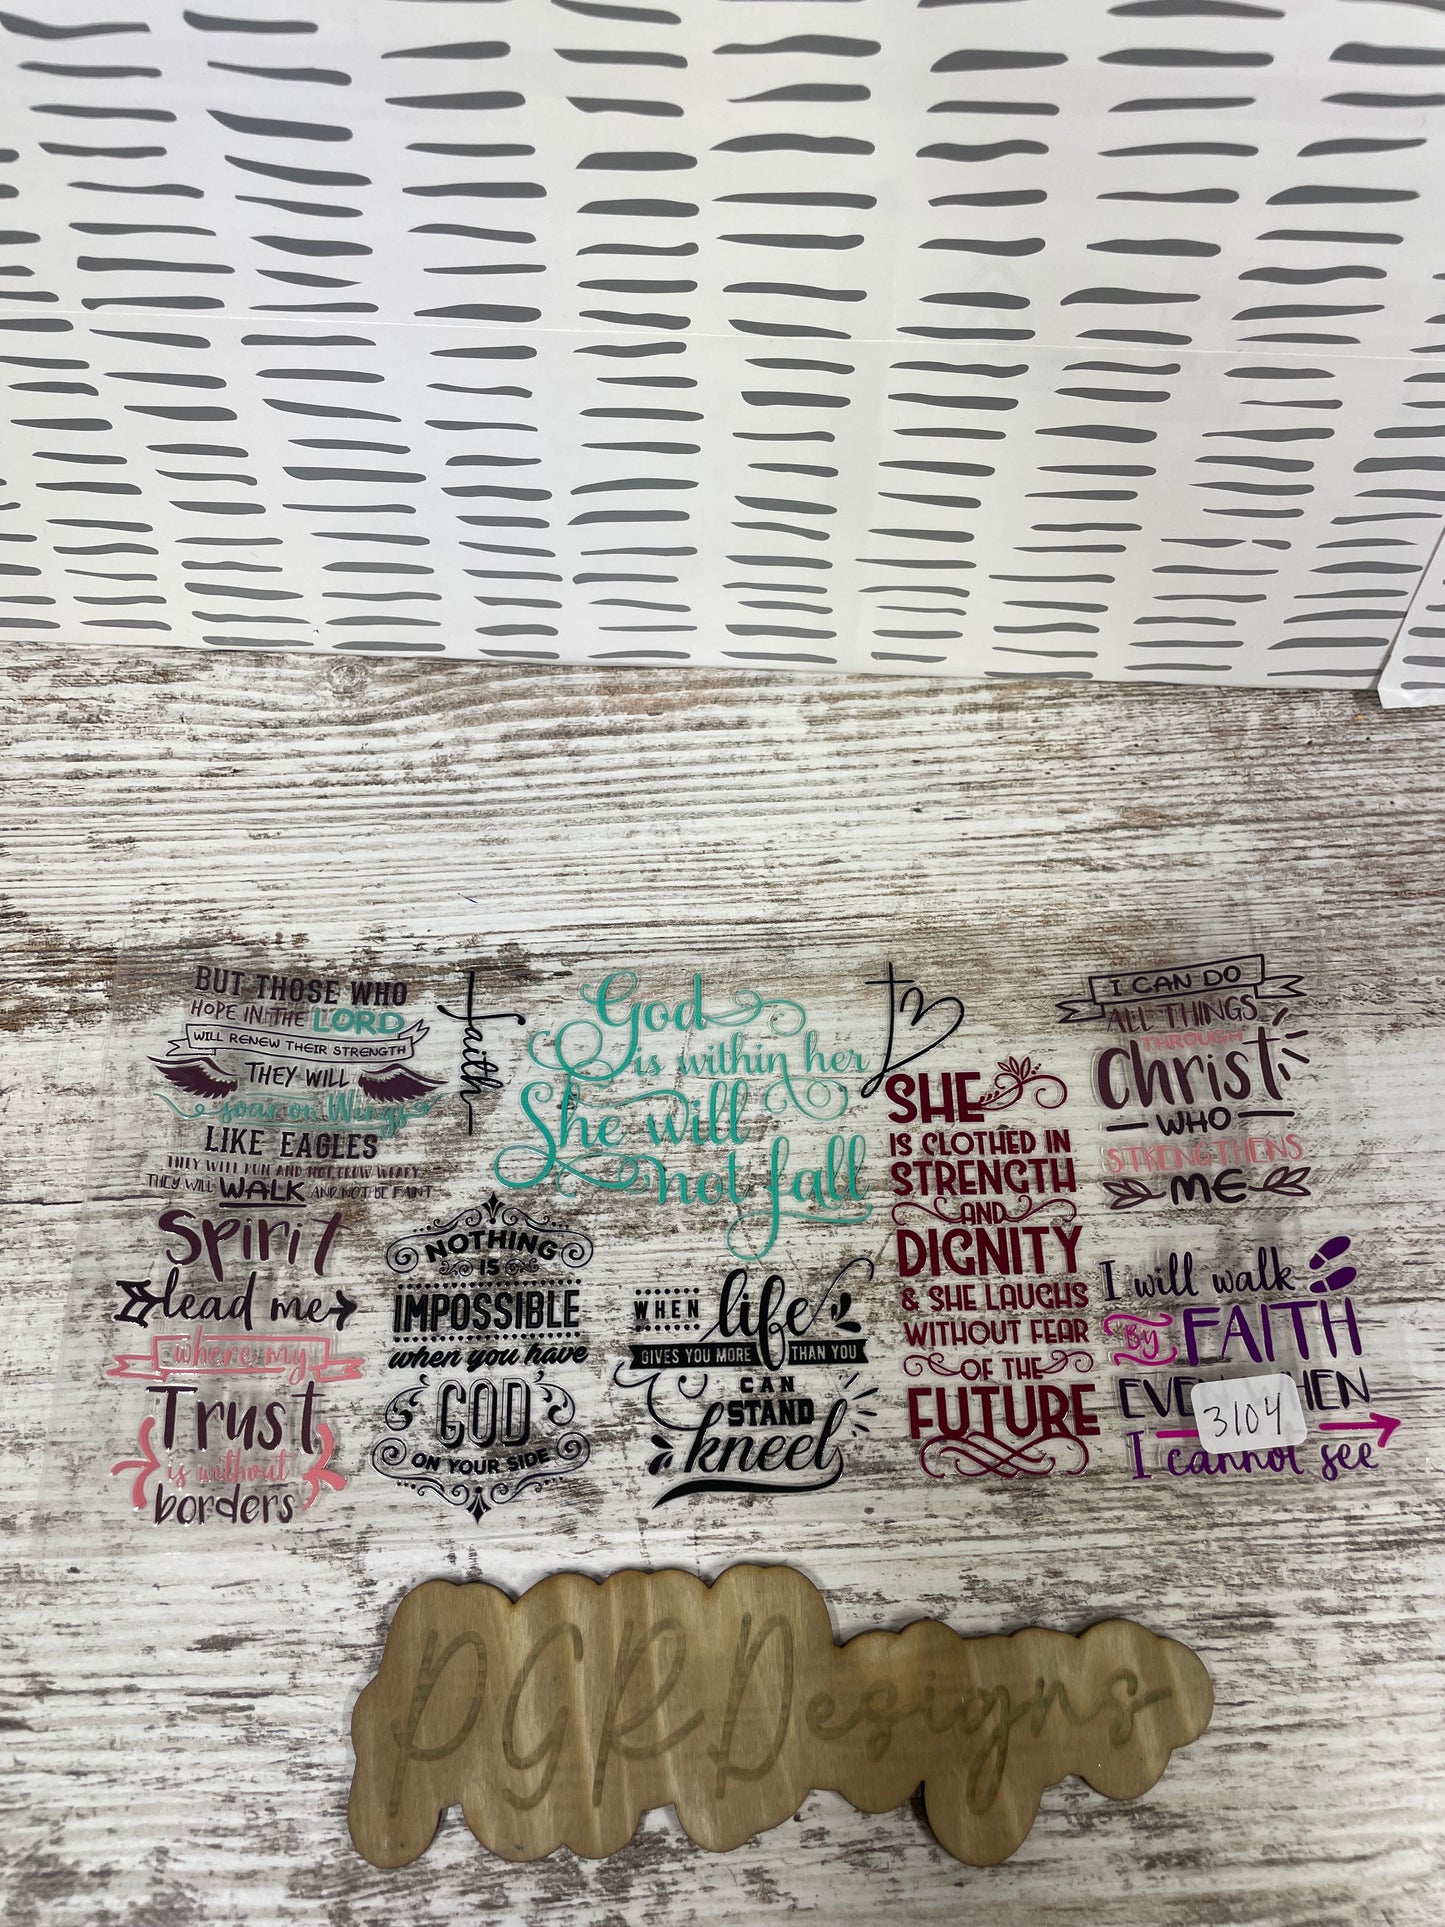 BUT THOSE WHO
HOPE IN THE LORD
WILL RENEW THEIR STRENGTH
THEY WILL
soar on Wings
LIKE EAGLES
THEY WILL RUN AND NOT GROW WEARY
THEY WILL WALK AND NOT BE FAINT
faith
God
is within her
She will
not fall
SHE
IS CLOTHED IN
STRENGTH
AND
DIGNITY
& SHE LAUGHS
WITHOUT FEAR
OF THE
FUTURE
I CAN DO
ALL THINGS
THROUGH
Christ
WHO
STRENGTHENS
ME
Spirit
lead me
where my
Trust
is without
borders
NOTHING
IS
IMPOSSIBLE
when you have
GOD
ON YOUR SIDE
WHEN life
GIVES YOU MORE THAN YOU
CAN
STAND
kneel
I will walk
By FAITH
EVEN WHEN
I cannot see
3104
PGRDesigns